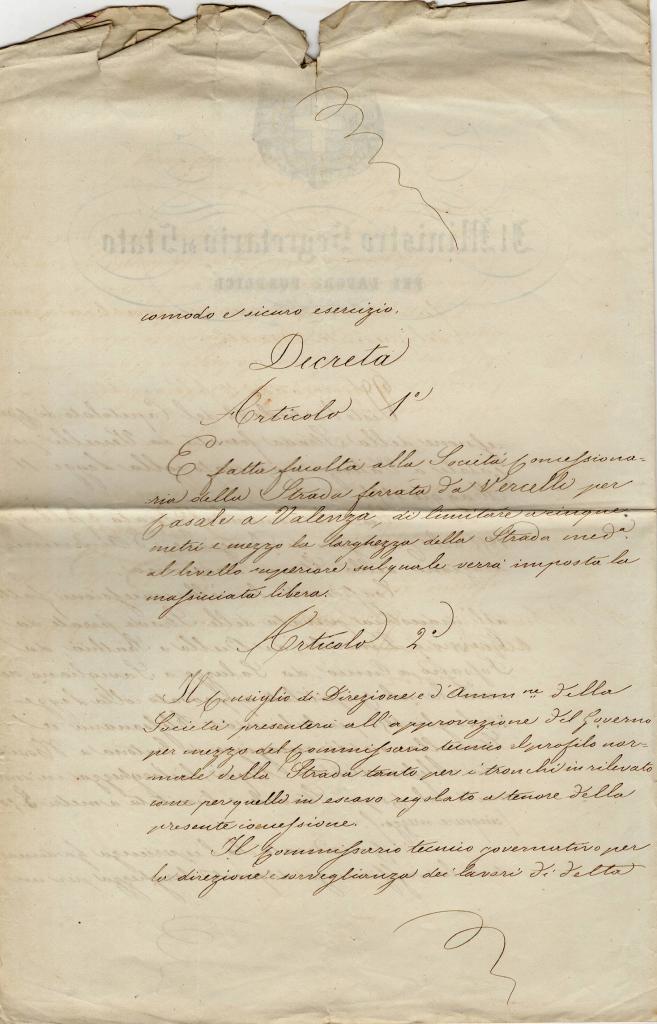 Il Ministro Segretario di Stato
PER LAVORI PUBBLICI
comodo e sicuro esercizio.
Decreta
Articolo 1º
E' fatta facoltà alla Società Concessiona=
ria della Strada ferrata da Vercelli per
Casale a Valenza, di limitare a cinque
metri e mezzo la larghezza della Strada med.ª
al livello superiore sul quale verrà imposta la
massicciata libera.
Articolo 2º
Il Consiglio di Direzione e d'Amm.ne della
Società presenterà all'approvazione del Governo
per mezzo del Commissario tecnico il profilo nor=
male della Strada tanto per i tronchi in rilevato
come per quelli in escavo regolato a tenore della
presente concessione.
Il Commissario tecnico governativo per
la direzione e sorveglianza dei lavori di detta